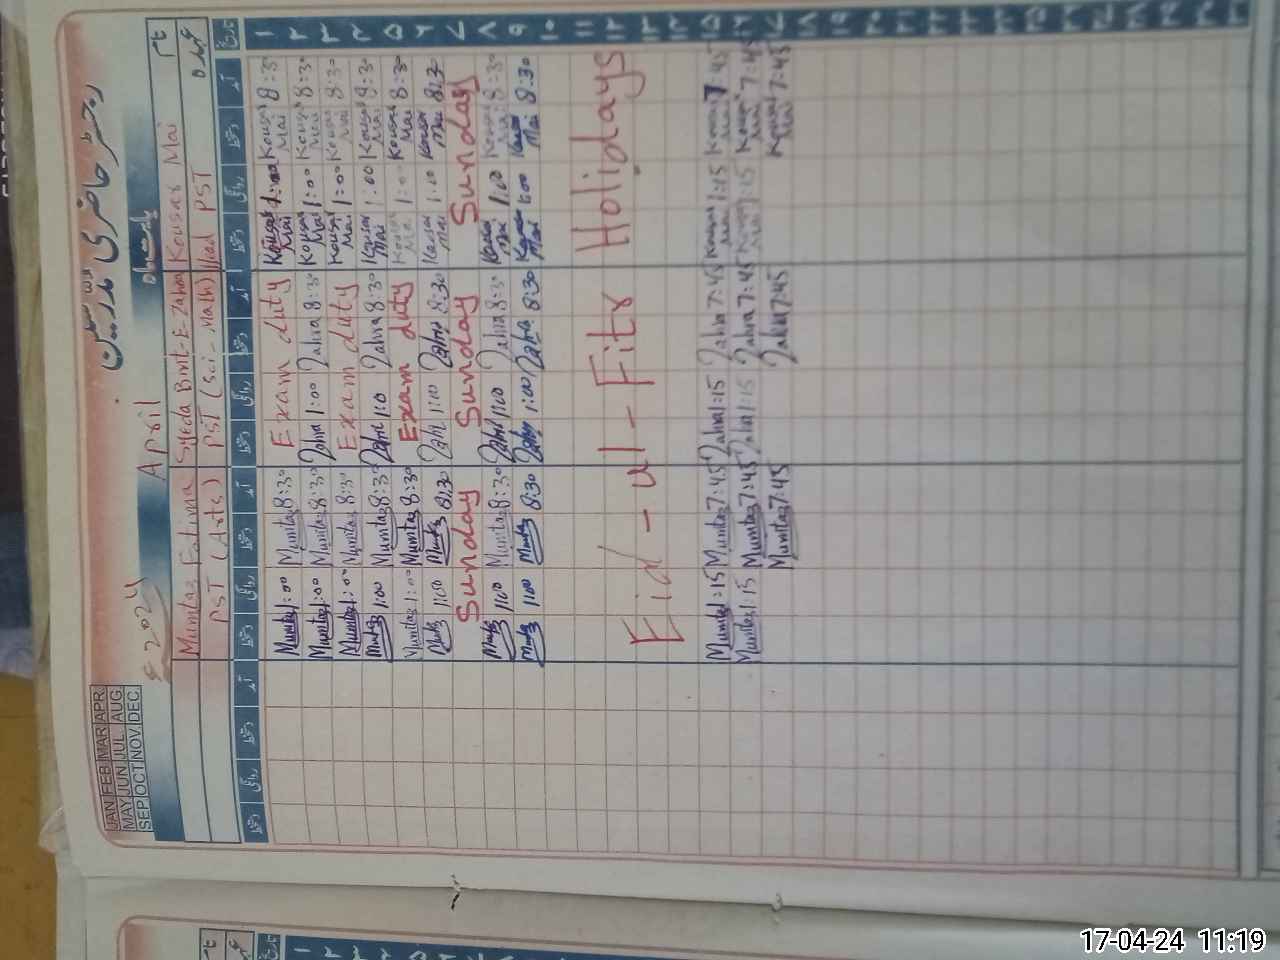 رجسٹر حاضری مدرسین
JAN FEB MAR APR
MAY JUN JUL AUG
SEP OCT NOV DEC
2024 April
نام Kousar Mai Syeda Bint-E-Zahra Mumtaz Fatima
عہدہ Head PST PST (Sci-Math) PST (Arts)
تاریخ آمد دستخط روانگی دستخط آمد دستخط روانگی دستخط آمد دستخط روانگی دستخط آمد دستخط روانگی دستخط
۱ 8:30 Kousar Mai 1:00 Kousar Mai Exam duty 8:30 Mumtaz 1:00 Mumtaz
۲ 8:30 Kousar Mai 1:00 Kousar Mai 8:30 Zahra 1:00 Zahra 8:30 Mumtaz 1:00 Mumtaz
۳ 8:30 Kousar Mai 1:00 Kousar Mai Exam duty 8:30 Mumtaz 1:00 Mumtaz
۴ 8:30 Kousar Mai 1:00 Kousar Mai 8:30 Zahra 1:0 Zahra 8:30 Mumtaz 1:00 Mumtaz
۵ 8:30 Kousar Mai 1:00 Kousar Mai Exam duty 8:30 Mumtaz 1:00 Mumtaz
۶ 8:30 Kousar Mai 1:00 Kousar Mai 8:30 Zahra 1:00 Zahra 8:30 Mumtaz 1:00 Mumtaz
۷ Sunday Sunday Sunday
۸ 8:30 Kousar Mai 1:00 Kousar Mai 8:30 Zahra 1:00 Zahra 8:30 Mumtaz 1:00 Mumtaz
۹ 8:30 Kousar Mai 1:00 Kousar Mai 8:30 Zahra 1:00 Zahra 8:30 Mumtaz 1:00 Mumtaz
۱۰
۱۱
۱۲ Eid-ul-Fitr Holidays
۱۳
۱۴
۱۵ 7:45 Kousar Mai 1:15 Kousar Mai 7:45 Zahra 1:15 Zahra 7:45 Mumtaz 1:15 Mumtaz
۱۶ 7:45 Kousar Mai 1:15 Kousar Mai 7:45 Zahra 1:15 Zahra 7:45 Mumtaz 1:15 Mumtaz
۱۷ 7:45 Kousar Mai 7:45 Zahra 7:45 Mumtaz
۱۸
۱۹
۲۰
۲۱
۲۲
۲۳
۲۴
۲۵
۲۶
۲۷
۲۸
۲۹
۳۰
۳۱
نام
عہدہ
17-04-24 11:19